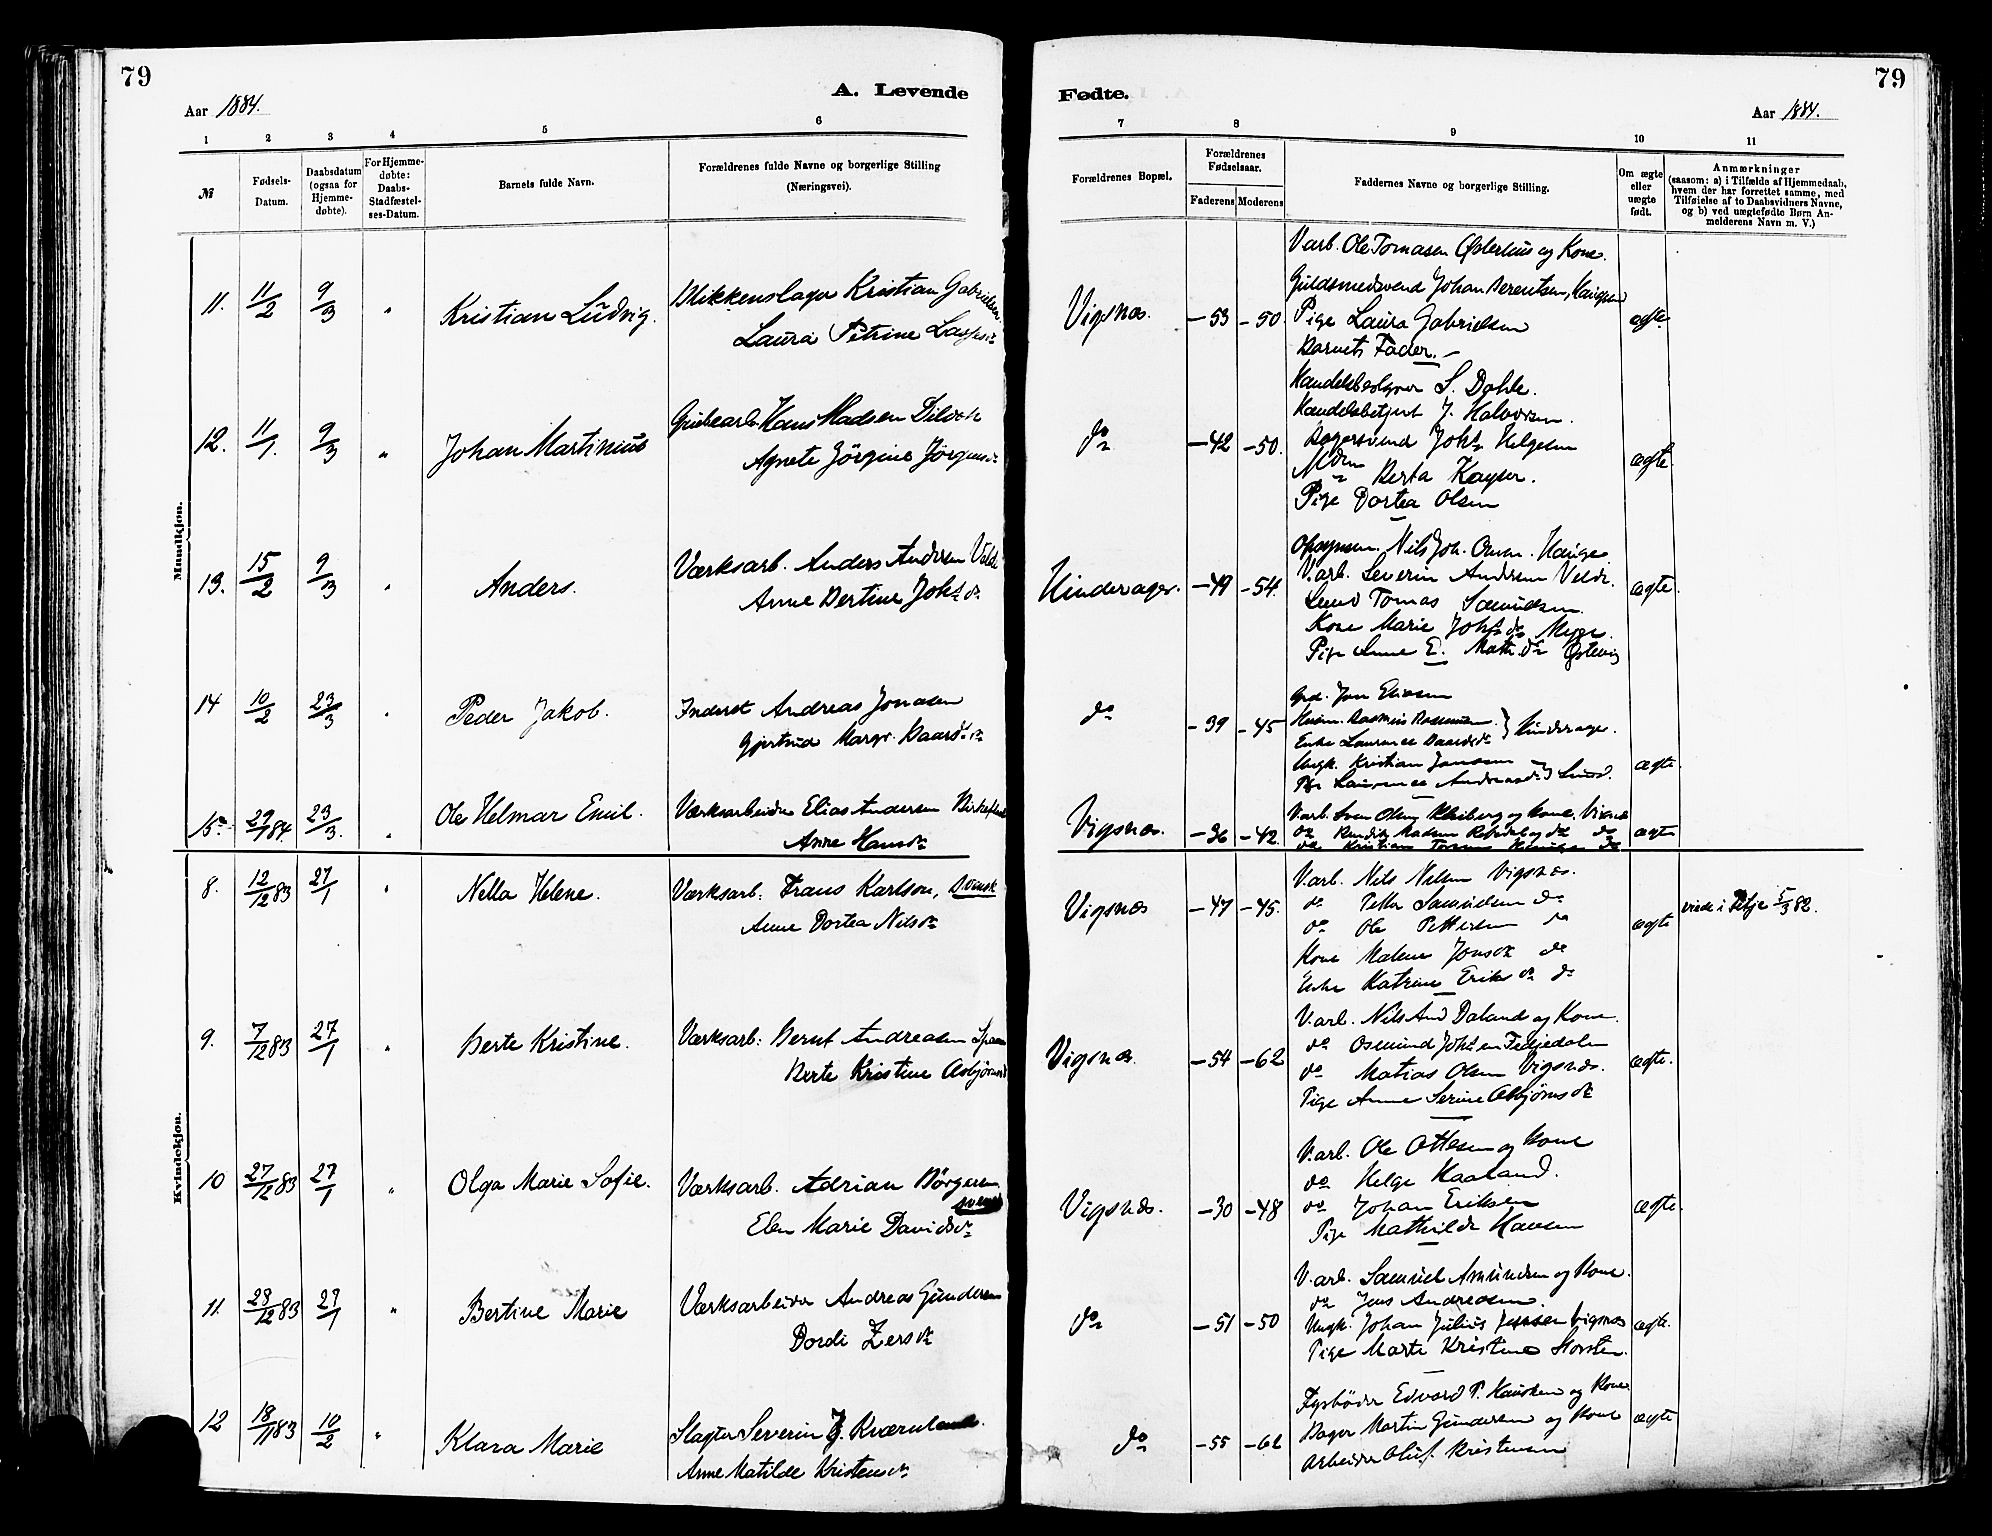 79
A. Levende
Aar 1884.
1 2 3 4 5 6
№
Fødsels-Datum.
Daabsdatum (ogsaa for Hjemme-døbte).
For Hjemme-døbte: Daabs-Stadfæstel-ses-Datum.
Barnets fulde Navn.
Forældrenes fulde Navne og borgerlige Stilling
(Næringsvei).
Mandkjøn.
11. 11/2 9/3 " Kristian Ludvig. Blikkenslager Kristian Gabrielsen
Laura Petrine
12. 11/1. 9/3 " Johan Martinius Grubearb. Hans Madsen
Agnete Jørgine Jørgensdr
13. 15/2 9/3 " Anders. Værksarb. Anders Andersen
Anne Bertine Johsdr
14 10/2 23/3 " Peder Jakob. Inderst Andreas Jonasen
Gjertrud Margr. Baardsdr
15 29/1 84. 23/3. " Ole Helmar Emil. Værksarbeider Elias Andersen
Anne Hansdr
Kvindekjøn.
8. 12/12 83 27/1 " Nella Helene. Værksarb. Frans Karlson, Svensk
Anne Dortea Nilsdr
9. 7/12 83 27/1 " Berte Kristine. Værksarb. Bernt Andreasen
Berte Kristine Asbjørnsdr
10 27/12 83 27/1 " Olga Marie Sofie. Værksarb. Adrian Børgesen
Elen Marie Davidsdr
11. 23/12 83 29/1 " Bertine Marie Værksarbeider Andreas Gundersen
Dordi
12 18/11 83 10/2 " Klara Marie Slagter Severin J. Kværneland.
Anne Matilde Kristensdr
79
Fødte.
Aar 1884.
7 8 9 10 11
Forældrenes Bopæl.
Forældrenes Fødselsaar.
Faderens Moderens
Faddernes Navne og borgerlige Stilling.
Om ægte eller uægte født.
Anmærkninger
(saasom: a) i Tilfælde af Hjemmedaab,
hvem der har forrettet samme, med
Tilføielse af to Daabsvidners Navne,
og b) ved uægtefødte Børn An-
melderens Navn m. V.)
Varb. Ole Tomasen Østerhus og Kone.
Guldsmedsvend Johan Berentsen,
Vigsnæs. -53 -50. Pige Laura Gabrielsen ægte.
Barnets Fader.
Handelsbestyrer S. Dahle.
Handelsbetjent J. Halvorsen.
do -42 -50. Bagersvend Johs Helgesen ægte.
Berta Kayser.
Pige Dortea Olsen
Nils Joh. Hauge
Varb. Severin Andersen Velde.
Hinderager. -49 -54. Tomas Samuelsen. ægte.
Kone Marie Johsdr Myge.
Pige Anne E. Math.dr Østevig
Grd. Jon Eliasen
do -39 -45 Husm. Rasmus Rasmussen } Hinderager.
Enke Laurence Baardsdr
Ungk. Kristian Jonasen
Pige Laurence Andreasdr ægte.
Varb. Sven Olsen og Kone. Vigsnæs
Vigsnæs. -36 -42. do Madsen do ægte
do Kristian do
Varb. Nils Nilsen Vigsnæs.
Vigsnæs -47 -45. do Peter Samuelsen do
do Ole Pettersen do ægte viede i 5/3 82.
Kone Malene Jonsdr do
Enke Katrine Eriksdr do
Varb. Nils And. Daland og Kone.
do Osmund Johsen Fedjedalen
Vigsnæs. -54 -62 do Matias Olsen Vigsnæs. ægte.
Pige Anne Serine Asbjørnsdr
Varb. Ole Ottesen og Kone
do Helge Kaaland.
Vigsnæs. -30 -48 do Johan Eriksen ægte.
Pige Mathilde Hansen
Varb. Samuel Amundsen og Kone.
do Jens Andreasen.
do -51 -50 Ungk. Johan Julius Jensen Vigsnæs ægte.
Pige Marte Kristine
Fyrbøder Edvard P. og Kone.
do -55 -62 Bager Martin Gundersen og Kone ægte
Arbeider Oluf Kristensen